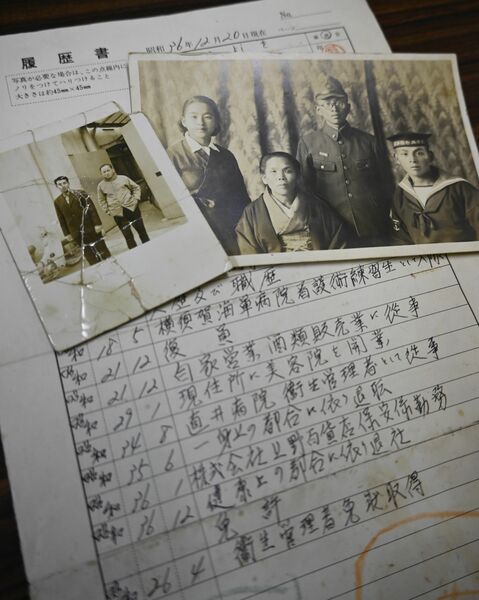 No.
履歴書
昭和 36年12月20日現在
写真が必要な場合は、この点線内に
ノリをつけてハリつけること
大きさは約45mm×45mm
職歴
昭和 18 5 横須賀海軍病院看護術練習生として入隊
昭和 21 12 復員
昭和 21 12 自家営業酒類販売業に従事
昭和 29 現住所に美容院を開業
昭和 34 8 直井病院 衛生管理者として従事
昭和 35 6 一身上の都合に依り退職
昭和 36 1 株式会社上野百貨店保安係勤務
昭和 36 12 健康上の都合に依り退社
免許
昭和 26 4 衛生管理者免状取得